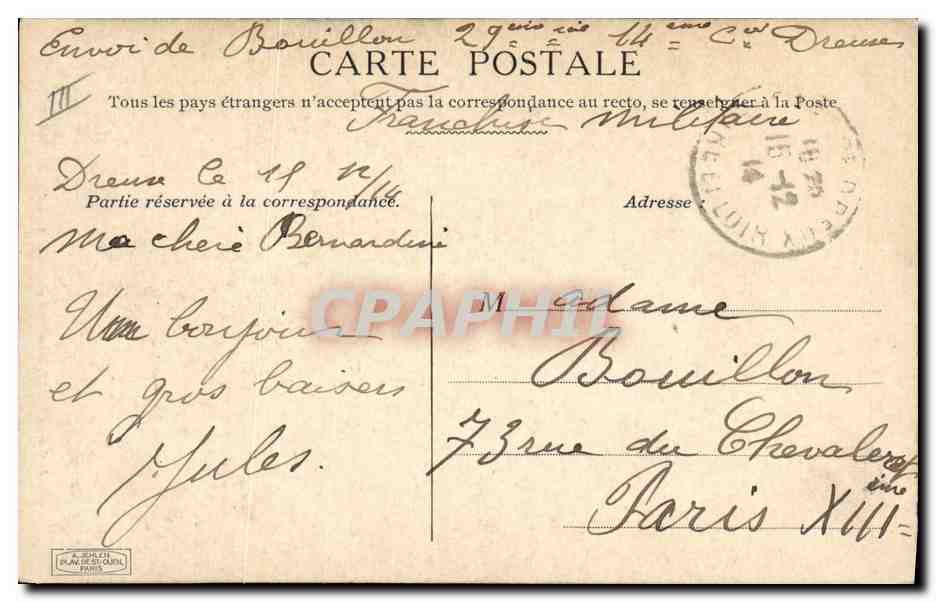 Envoi de Bouillon 29eme 14eme Cie Dreux
CARTE POSTALE
III
Tous les pays étrangers n'acceptent pas la correspondance au recto, se renseigner à la Poste
Franchise militaire
Dreux le 15 12/14
Partie réservée à la correspondance.
Adresse :
Ma chère Bernardine
Un bonjour
et gros baisers
Jules.
Madame
Bouillon
73 rue du Chevaleret
Paris XIIIeme
CPAPHIL
15-12
14
A. JEHLEN
AV. DE ST-OUEN,
PARIS